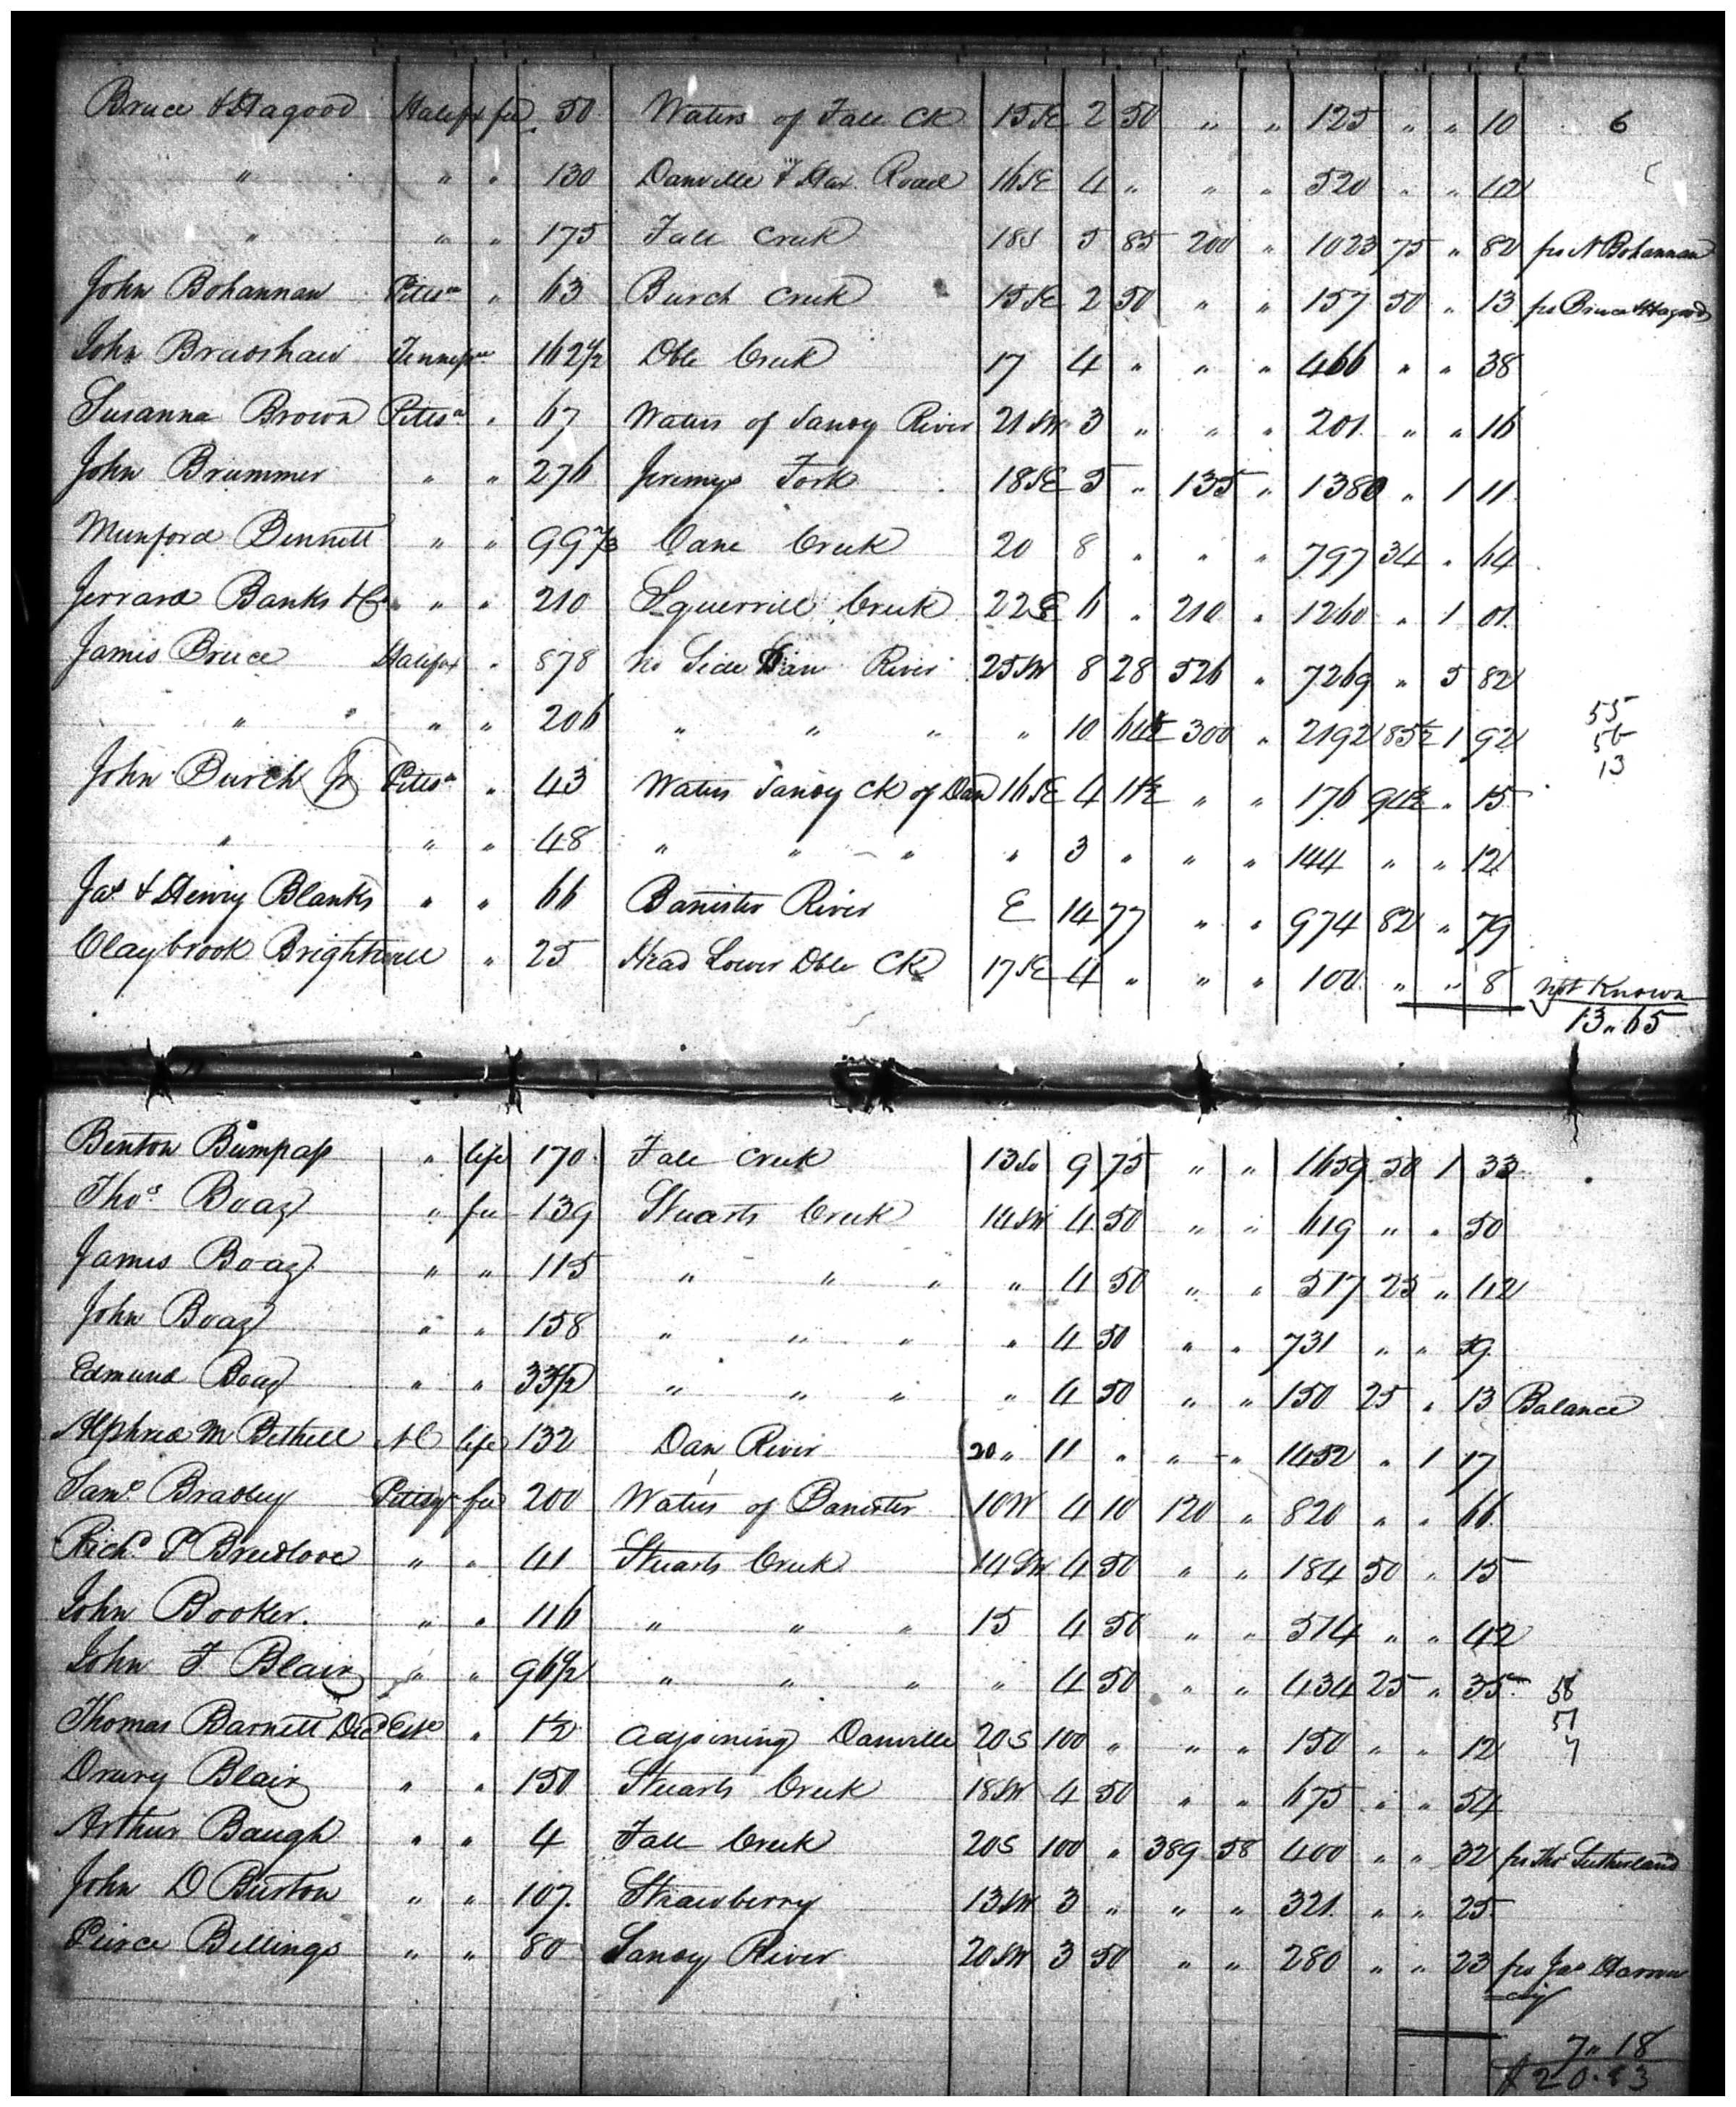 Bruce & Hagood Halifax fee 50 Waters of Fall Ck 15 SE 2 50 " " 125 " " 10 6
" " " 130 Danville & Hax. Road 16 SE 4 " " " 520 " " 42
" " " 175 Fall Creek 18 S 5 85 200 " 1023 75 " 82 fro N Bohannan
John Bohannan Pittsa " 63 Burch Creek 15 SE 2 50 " " 157 50 " 13 fro Bruce & Hagood
John Bradshaw Tennessee 162 1/2 Dble Creek 17 4 " " " 466 " " 38
Susanna Brown Pittsa " 67 Waters of Sandy River 21 SW 3 " " " 201 " " 16
John Brummer " " 276 Jeremys Fork 18 SE 5 " 135 " 1380 " 1 11
Munford Bennett " " 99 2/3 Cane Creek 20 8 " " " 797 34 " 64
Jerrard Banks & Co " " 210 Squerrill Creek 22 SE 6 " 210 " 1260 " 1 01
James Bruce Halifax " 878 No Side Dan River 25 SW 8 28 526 " 7269 " 5 82
" " " " 206 " " " " 10 64 1/2 300 " 2192 85 1/2 1 92 55
56
John Burch Jr Pittsa " 43 Waters Sandy Ck of Dan 16 SE 4 11 1/2 " " 176 94 1/2 " 15 13
" " " 48 " " " " 3 " " " 144 " " 12
Jas & Henry Blanks " " 66 Banister River E 14 77 " " 974 82 " 79
Claybrook Brightwell " 25 Head Lower Dble Ck 17 SE 4 " " " 100 " " 8 Not Known
13 " 65
Benton Bumpass " life 170 Fall Creek 13 So 9 75 " " 1659 50 1 33
Thos Boaz " fee 139 Stuarts Creek 14 SW 4 50 " " 619 " " 50
James Boaz " " 115 " " " " 4 50 " " 517 25 " 42
John Boaz " " 158 " " " " 4 50 " " 731 " " 59
Edmund Boaz " " 33 1/2 " " " " 4 50 " " 150 25 " 13 Balance
Alphred M Bethell NC life 132 Dan River 20 " 11 " " " 1452 " 1 17
Saml Bradley Pittsya fee 200 Waters of Banister 10 W 4 10 120 " 820 " " 66
Richd P Breedlove " " 41 Stuarts Creek 14 SW 4 50 " " 184 50 " 15
John Booker. " " 116 " " " 15 4 50 " " 514 " " 42
John F Blair " " 96 1/2 " " " " 4 50 " " 434 25 " 35 58
Thomas Barnett Decd Este " 1 1/2 adjoining Danville 20 S 100 " " " 150 " " 12 51
7
Drury Blair " " 150 Stuarts Creek 18 SW 4 50 " " 675 " " 54
Arthur Baugh " " 4 Fall Creek 20 S 100 " 389 58 400 " " 32 fro Thos Sutherland
John D Burton " " 107 Strawberry 13 SW 3 " " " 321 " " 25
Peirce Billings " " 80 Sandy River 20 SW 3 50 " " 280 " " 23 fro Jas
7 " 18
$20.83